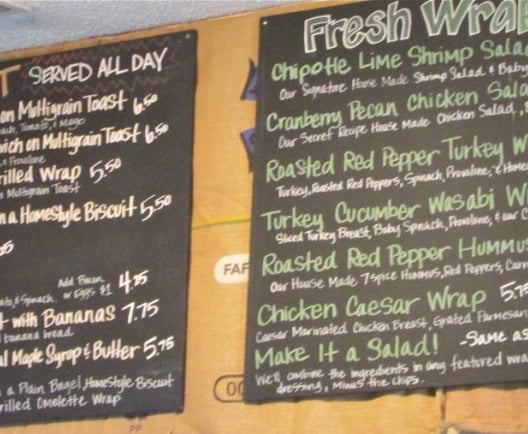 T SERVED ALL DAY
on Multigrain Toast 6.50
ach, Tomato, & Mayo
wich on Multigrain Toast 6.50
& Provolone
rilled Wrap 5.50
n Multigrain Toast
n a Homestyle Biscuit 5.50
Add Bacon,
ato, & Spinach. or Eggs $1 4.95
t with Bananas 7.75
banana bread.
al Maple Syrup & Butter 5.75
n a Plain Bagel, Homestyle Biscuit
rilled Omelette Wrap
FAF
Fresh Wra
Chipotle Lime Shrimp Sala
Our Signature House Made Shrimp Salad & Baby
Cranberry Pecan Chicken Sala
Our Secret Recipe House Made Chicken Salad,
Roasted Red Pepper Turkey W
Turkey, Roasted Red Peppers, Spinach, Provolone, & Home
Turkey Cucumber Wasabi W
Sliced Turkey Breast, Baby Spinach, Provolone, & our
Roasted Red Pepper Hummu
Our House Made 7 Spice Hummus, Red Peppers, Carr
Chicken Caesar Wrap 5.75
Caesar Marinated Chicken Breast, Grated Parmesan
Make It a Salad! -Same as
We'll combine the ingredients in any featured wra
dressing, Minus the chips.